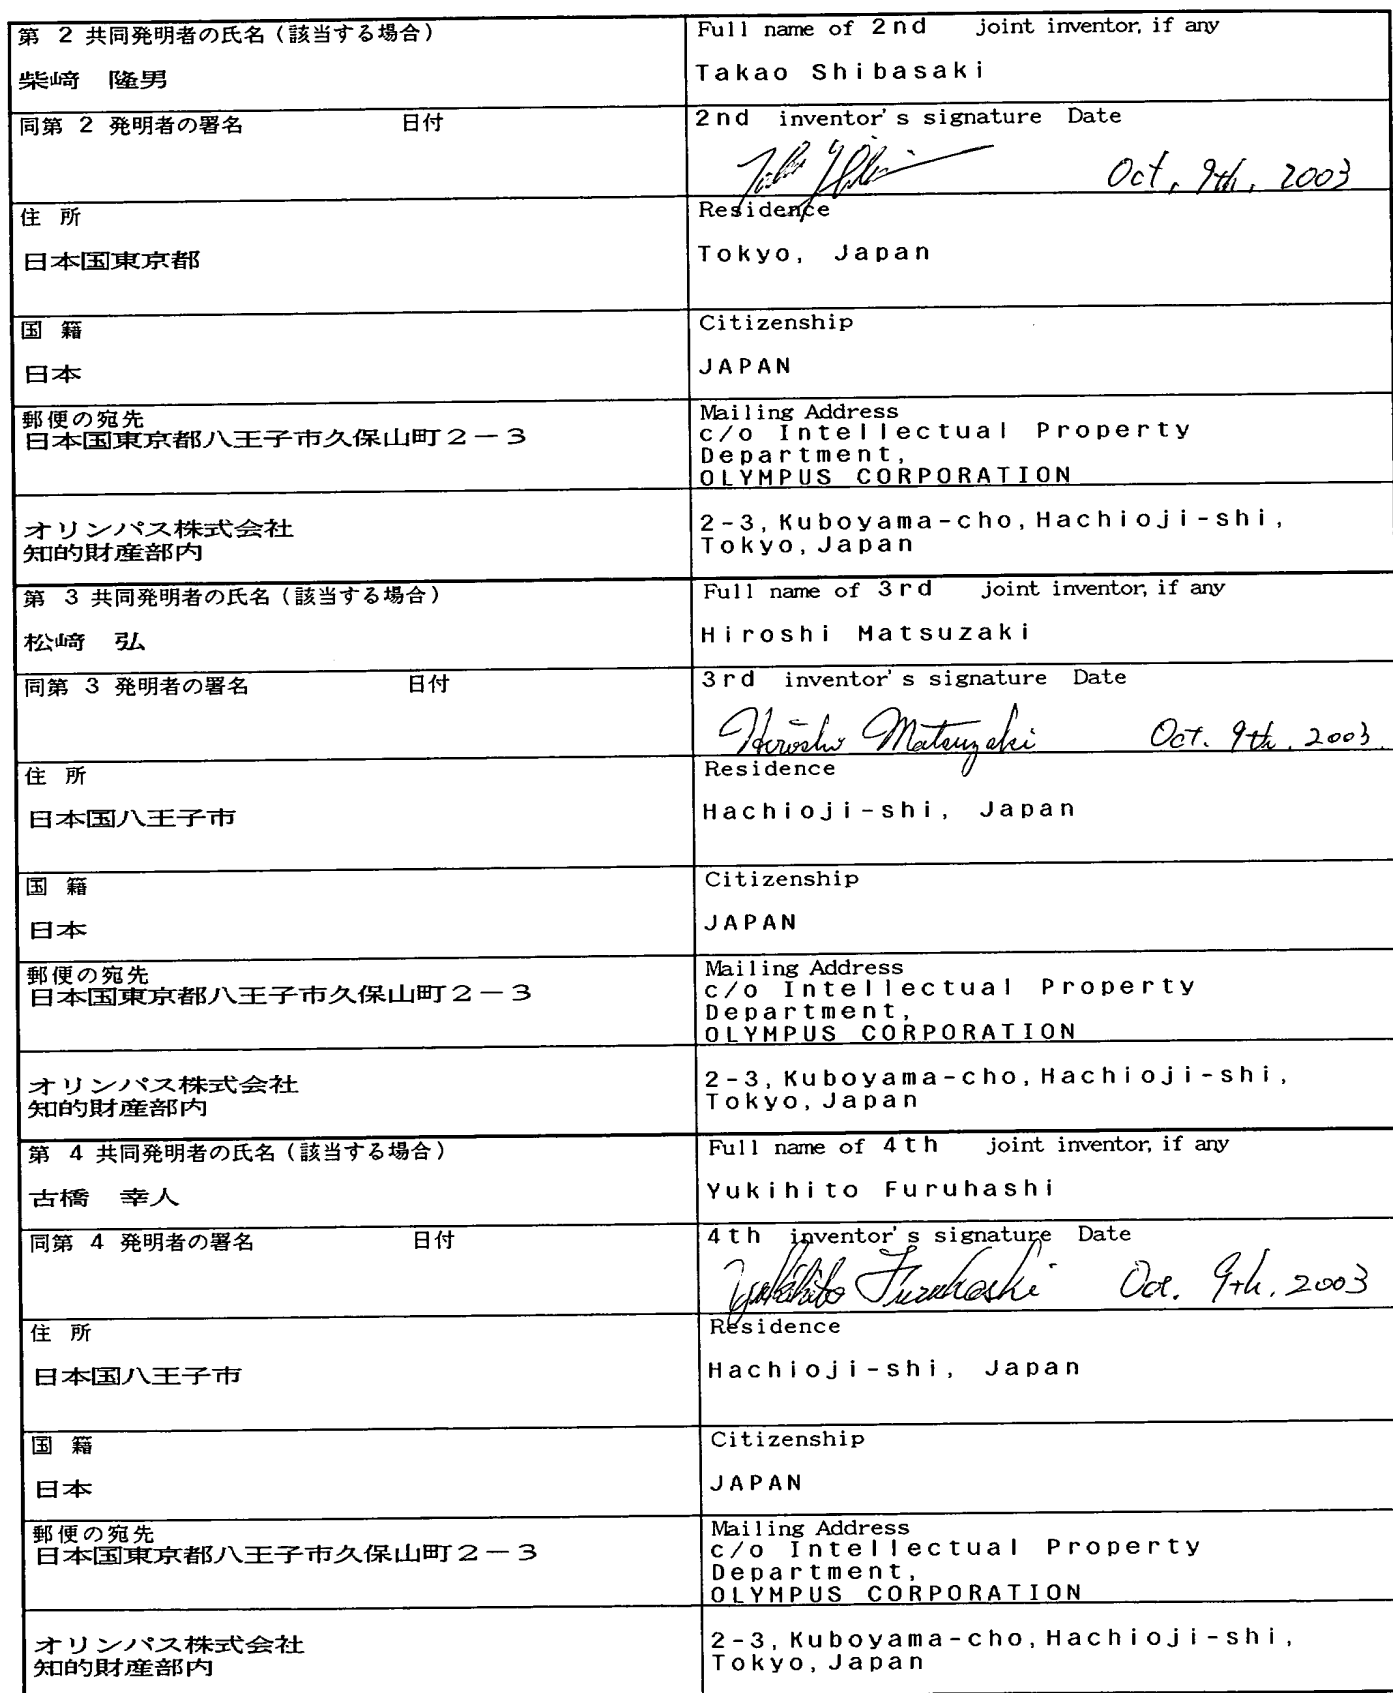 第 2 共同発明者の氏名（該当する場合）
柴崎 隆男
Full name of 2nd joint inventor, if any
Takao Shibasaki
同第 2 発明者の署名 日付
2nd inventor's signature Date
Oct. 9th, 2003
住 所
日本国東京都
Residence
Tokyo, Japan
国 籍
日本
Citizenship
JAPAN
郵便の宛先
日本国東京都八王子市久保山町２－３
Mailing Address
c/o Intellectual Property
Department,
OLYMPUS CORPORATION
オリンパス株式会社
知的財産部内
2-3, Kuboyama-cho, Hachioji-shi,
Tokyo, Japan
第 3 共同発明者の氏名（該当する場合）
松崎 弘
Full name of 3rd joint inventor, if any
Hiroshi Matsuzaki
同第 3 発明者の署名 日付
3rd inventor's signature Date
Hiroshi Matsuzaki Oct. 9th, 2003
住 所
日本国八王子市
Residence
Hachioji-shi, Japan
国 籍
日本
Citizenship
JAPAN
郵便の宛先
日本国東京都八王子市久保山町２－３
Mailing Address
c/o Intellectual Property
Department,
OLYMPUS CORPORATION
オリンパス株式会社
知的財産部内
2-3, Kuboyama-cho, Hachioji-shi,
Tokyo, Japan
第 4 共同発明者の氏名（該当する場合）
古橋 幸人
Full name of 4th joint inventor, if any
Yukihito Furuhashi
同第 4 発明者の署名 日付
4th inventor's signature Date
Yukihito Furuhashi Oct. 9th, 2003
住 所
日本国八王子市
Residence
Hachioji-shi, Japan
国 籍
日本
Citizenship
JAPAN
郵便の宛先
日本国東京都八王子市久保山町２－３
Mailing Address
c/o Intellectual Property
Department,
OLYMPUS CORPORATION
オリンパス株式会社
知的財産部内
2-3, Kuboyama-cho, Hachioji-shi,
Tokyo, Japan